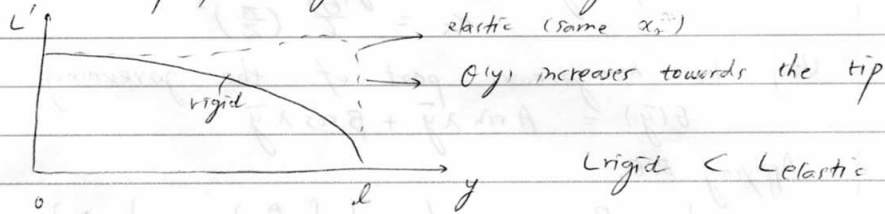 L'
elastic (same αr)
θ(y) increases towards the tip
rigid
Lrigid < Lelastic
0 l y